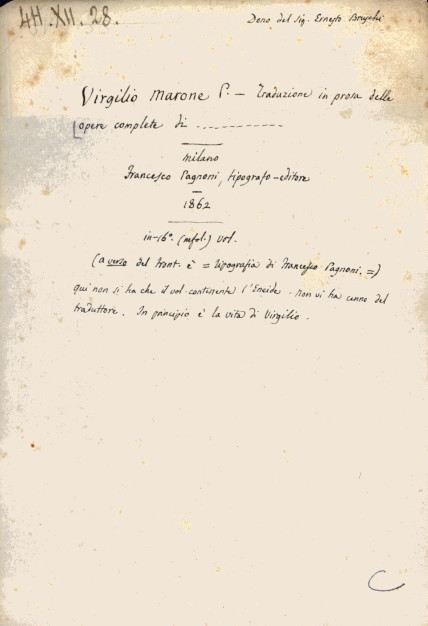 4H.XII.28.
Dono del Sig. Ernesto
Virgilio Marone P. — Traduzione in prosa delle
[opere complete di ------------
Milano
Francesco Pagnoni, tipografo-editore
1862
in-16°. (mfol.) vol.
(a verso del front. è = Tipografia di Francesco Pagnoni. =)
qui non si ha che il vol. contenente l'Eneide. Non vi ha cenno del
traduttore. In principio è la vita di Virgilio.
C